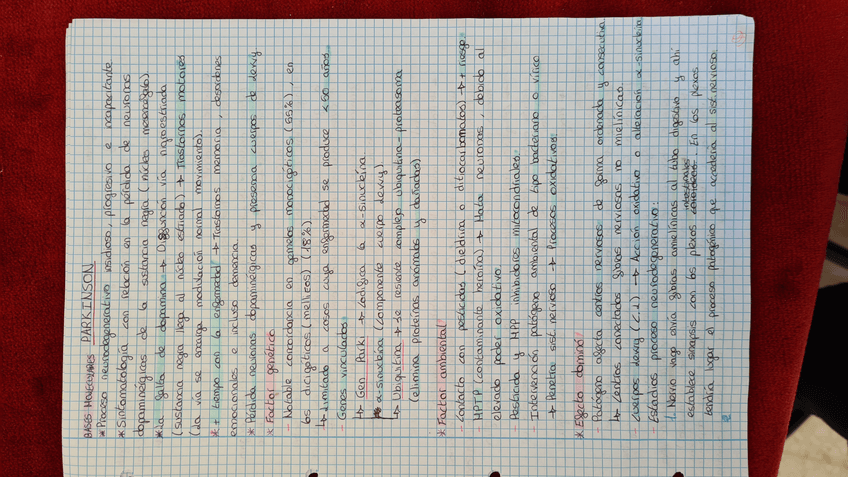 BASES MOLECULARES PARKINSON
* Proceso neurodegenerativo insidioso, progresivo e incapacitante
* Sintomatología con relación en la pérdida de neuronas
dopaminérgicas de la sustancia negra (núcleo mesencéfalo)
* La falta de dopamina → Disfunción vía nigroestriada
(sustancia negra llega al núcleo estriado) → Trastornos motores
(La vía se encarga modulación normal movimiento).
* + tiempo con la enfermedad → Trastornos memoria, desordenes
emocionales e incluso demencia
* Pérdida neuronas dopaminérgicas y presencia cuerpos de Lewy
* Factor genético
- Notable concordancia en gemelos monocigóticos (55%), en
los dicigóticos (mellizos) (18%)
↳ Limitado a casos cuya enfermedad se produce <50 años
- Genes vinculados:
↳ Gen Park1 → codifica la α-sinucleína
α-sinucleína (componente cuerpo Lewy)
↳ Ubiquitina → se resiente complejo ubiquitina-proteasoma
(elimina proteínas anómalas y dañadas)
* Factor ambiental
- Contacto con pesticidas (dieldrina o ditiocarbamatos) → + riesgo
- MPTP (contaminante heroína) → Mata neuronas, debido al
elevado poder oxidativo.
Pesticida y MPP inhibidores mitocondriales.
- Intervención patógeno ambiental de tipo bacteriano o vírico
→ Penetra sist. nervioso → Procesos oxidativos.
* Efecto dominó
- Patógeno afecta centros nerviosos de forma ordenada y consecutiva
↳ Centros conectados fibras nerviosas no mielínicas
- Cuerpos Lewy (C.L) → Acción oxidativa o alteración α-sinucleína
- Estadios proceso neurodegenerativo:
1. Nervio vago envía fibras amielínicas al tubo digestivo y ahí
establece sinapsis con los plexos intestinales. En los plexos
tendría lugar el proceso patogénico que accedería al sist. nervioso.